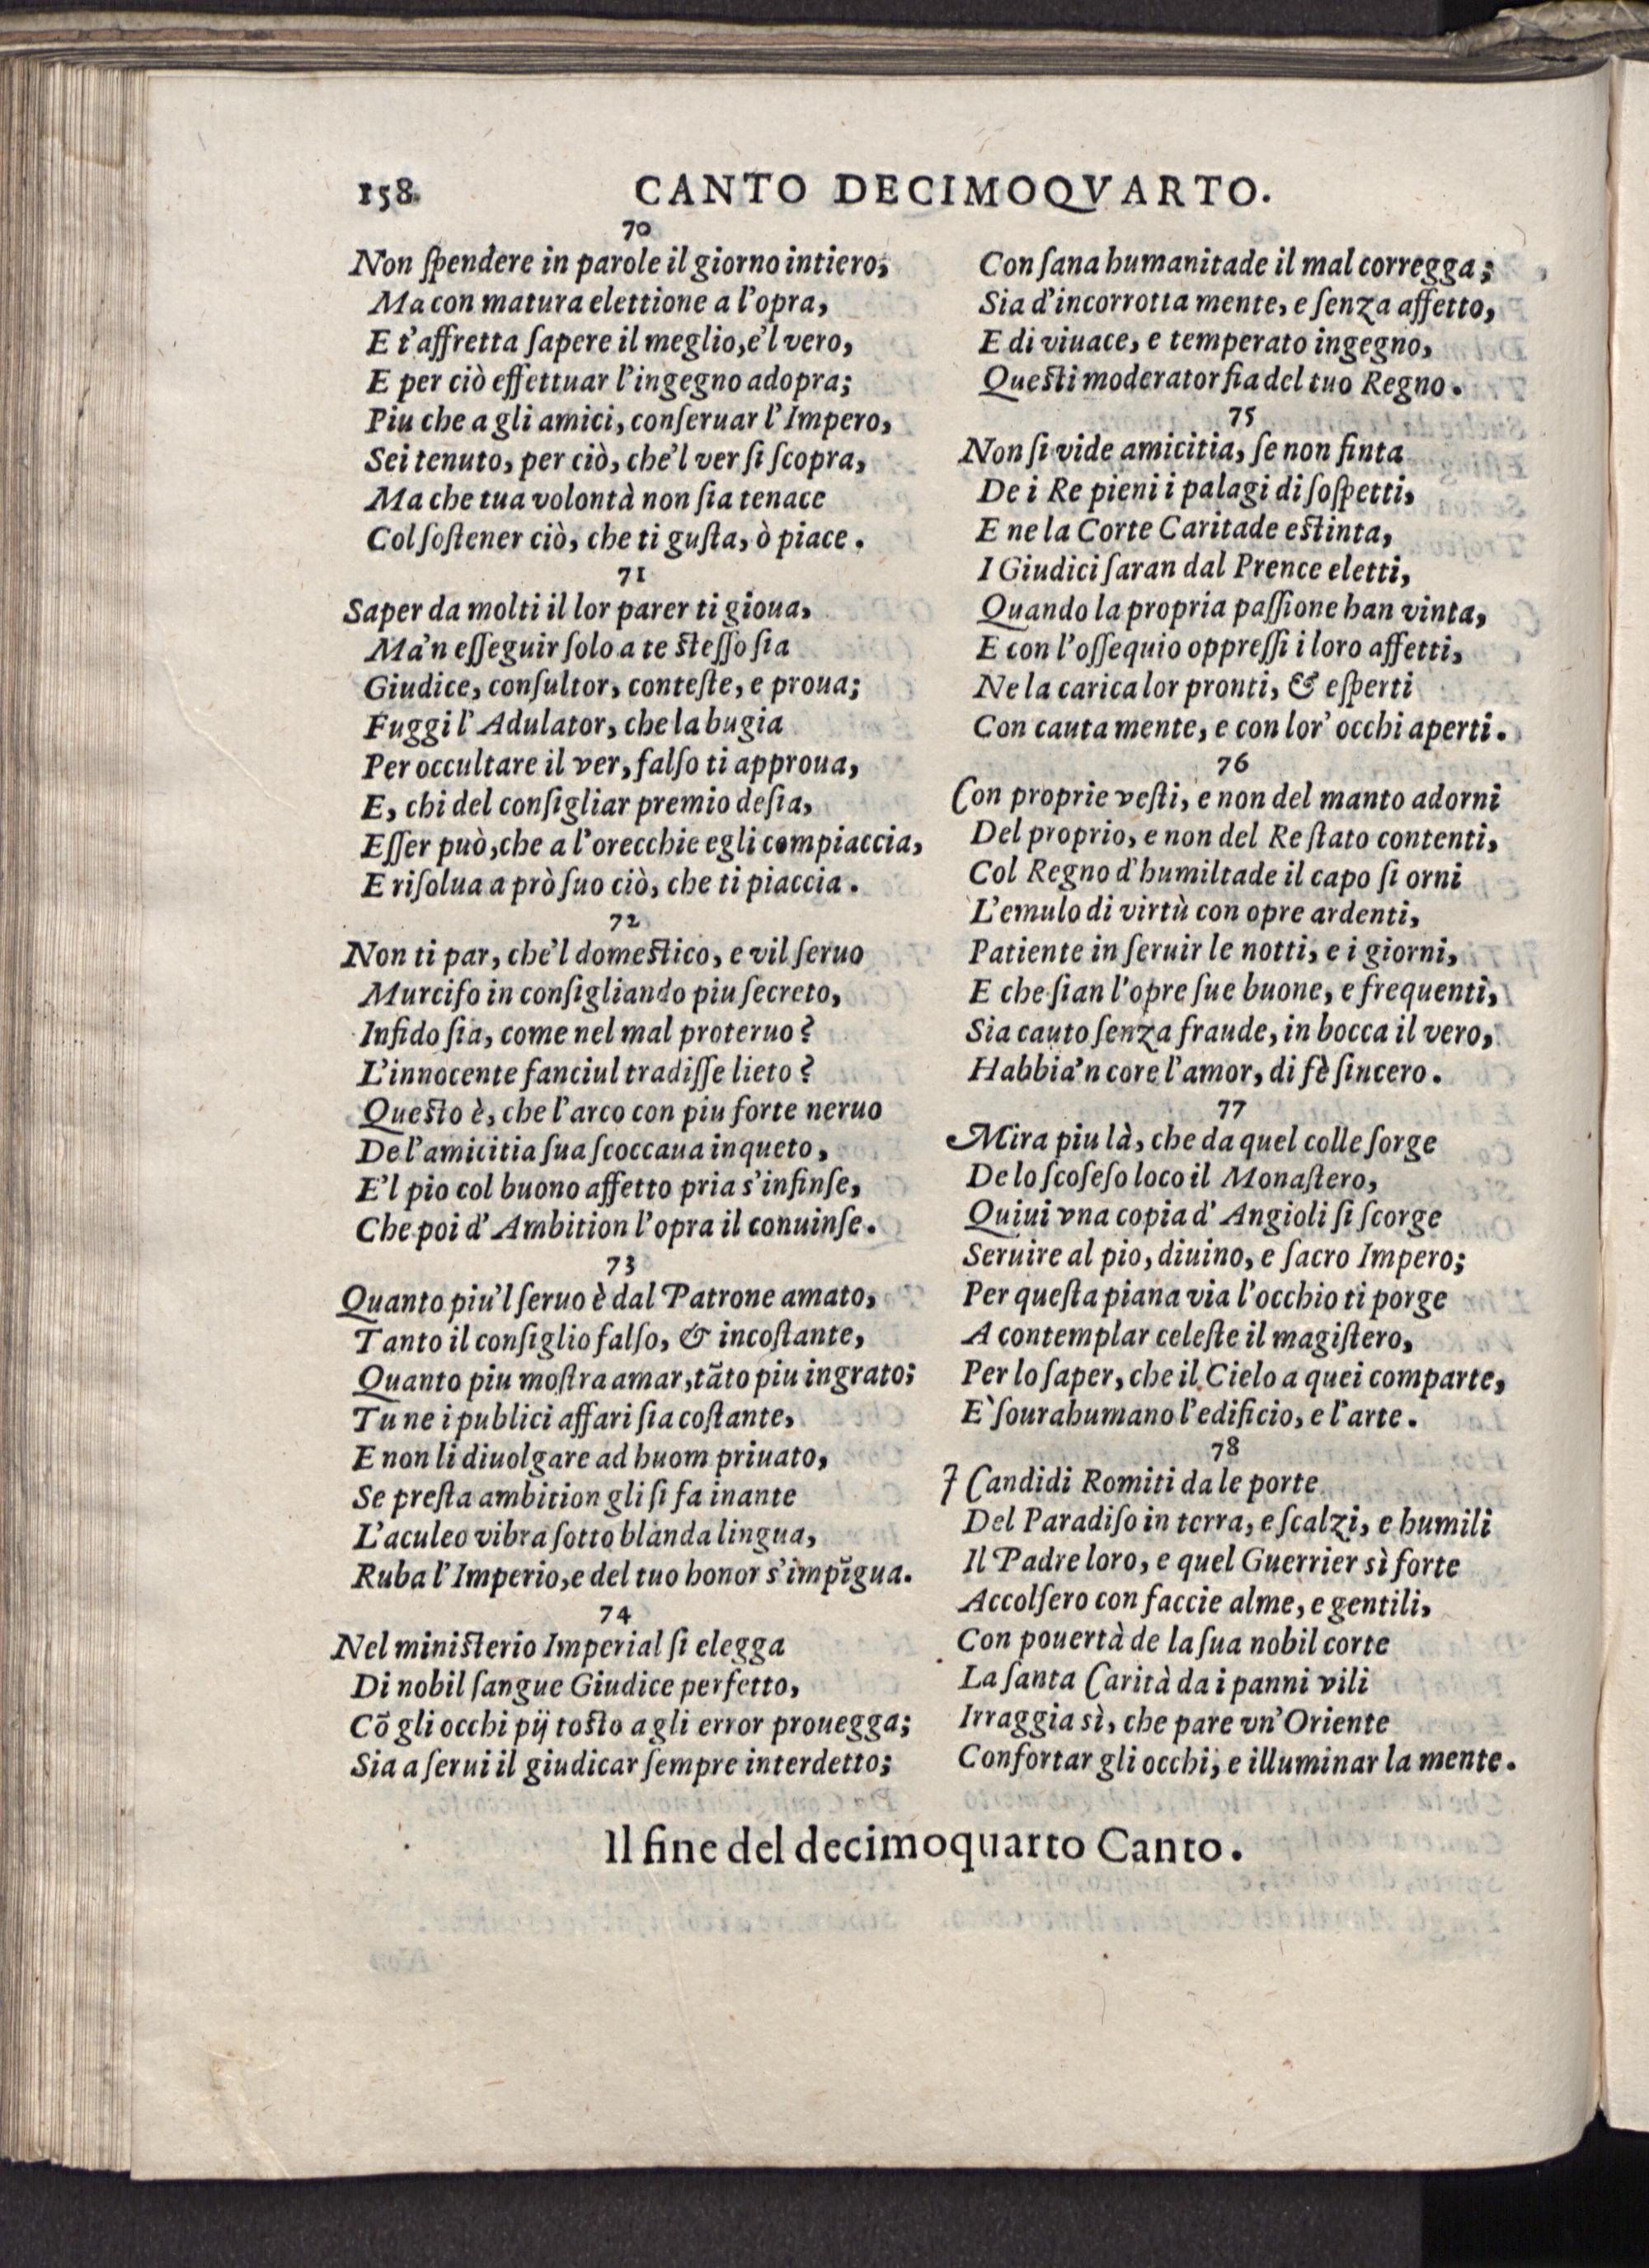 158. CANTO DECIMOQVARTO.
70
Non ſpendere in parole il giorno intiero,
Ma con matura elettione a l'opra,
E t'affretta ſapere il meglio, e'l vero,
E per ciò effettuar l'ingegno adopra;
Piu che a gli amici, conſeruar l'Impero,
Sei tenuto, per ciò, che'l ver ſi ſcopra,
Ma che tua volontà non ſia tenace
Col ſoſtener ciò, che ti guſta, ò piace.
71
Saper da molti il lor parer ti gioua,
Ma'n eſſeguir ſolo a te ſteſſo ſia
Giudice, conſultor, conteſte, e proua;
Fuggi l'Adulator, che la bugia
Per occultare il ver, falſo ti approua,
E, chi del conſigliar premio deſia,
Eſſer può, che a l'orecchie egli compiaccia,
E riſolua a prò ſuo ciò, che ti piaccia.
72
Non ti par, che'l domeſtico, e vil ſeruo
Murcifo in conſigliando piu ſecreto,
Infido ſia, come nel mal proteruo?
L'innocente fanciul tradiſſe lieto?
Queſto è, che l'arco con piu forte neruo
De l'amicitia ſua ſcoccaua inqueto,
E'l pio col buono affetto pria s'infinſe,
Che poi d'Ambition l'opra il conuinſe.
73
Quanto piu'l ſeruo è dal Patrone amato,
Tanto il conſiglio falſo, & incoſtante,
Quanto piu moſtra amar, tãto piu ingrato;
Tu ne i publici affari ſia coſtante,
E non li diuolgare ad huom priuato,
Se preſta ambition gli ſi fa inante
L'aculeo vibra ſotto blanda lingua,
Ruba l'Imperio, e del tuo honor s'impĩgua.
74
Nel miniſterio Imperial ſi elegga
Di nobil ſangue Giudice perfetto,
Cõ gli occhi pij toſto a gli error prouegga;
Sia a ſerui il giudicar ſempre interdetto;
Con ſana humanitade il mal corregga;
Sia d'incorrotta mente, e ſenza affetto,
E di viuace, e temperato ingegno,
Queſti moderator fia del tuo Regno.
75
Non ſi vide amicitia, ſe non finta
De i Re pieni i palagi di ſoſpetti,
E ne la Corte Caritade eſtinta,
I Giudici ſaran dal Prence eletti,
Quando la propria paſſione han vinta,
E con l'oſſequio oppreſſi i loro affetti,
Ne la carica lor pronti, & eſperti
Con cauta mente, e con lor' occhi aperti.
76
Con proprie veſti, e non del manto adorni
Del proprio, e non del Re ſtato contenti,
Col Regno d'humiltade il capo ſi orni
L'emulo di virtù con opre ardenti,
Patiente in ſeruir le notti, e i giorni,
E che ſian l'opre ſue buone, e frequenti,
Sia cauto ſenza fraude, in bocca il vero,
Habbia'n core l'amor, di fè ſincero.
77
Mira piu là, che da quel colle ſorge
De lo ſcoſeſo loco il Monaſtero,
Quiui vna copia d'Angioli ſi ſcorge
Seruire al pio, diuino, e ſacro Impero;
Per queſta piana via l'occhio ti porge
A contemplar celeſte il magiſtero,
Per lo ſaper, che il Cielo a quei comparte,
E' ſourahumano l'edificio, e l'arte.
78
I Candidi Romiti da le porte
Del Paradiſo in terra, e ſcalzi, e humili
Il Padre loro, e quel Guerrier sì forte
Accolſero con faccie alme, e gentili,
Con pouertà de la ſua nobil corte
La ſanta Carità da i panni vili
Irraggia sì, che pare vn'Oriente
Confortar gli occhi, e illuminar la mente.
Il fine del decimoquarto Canto.